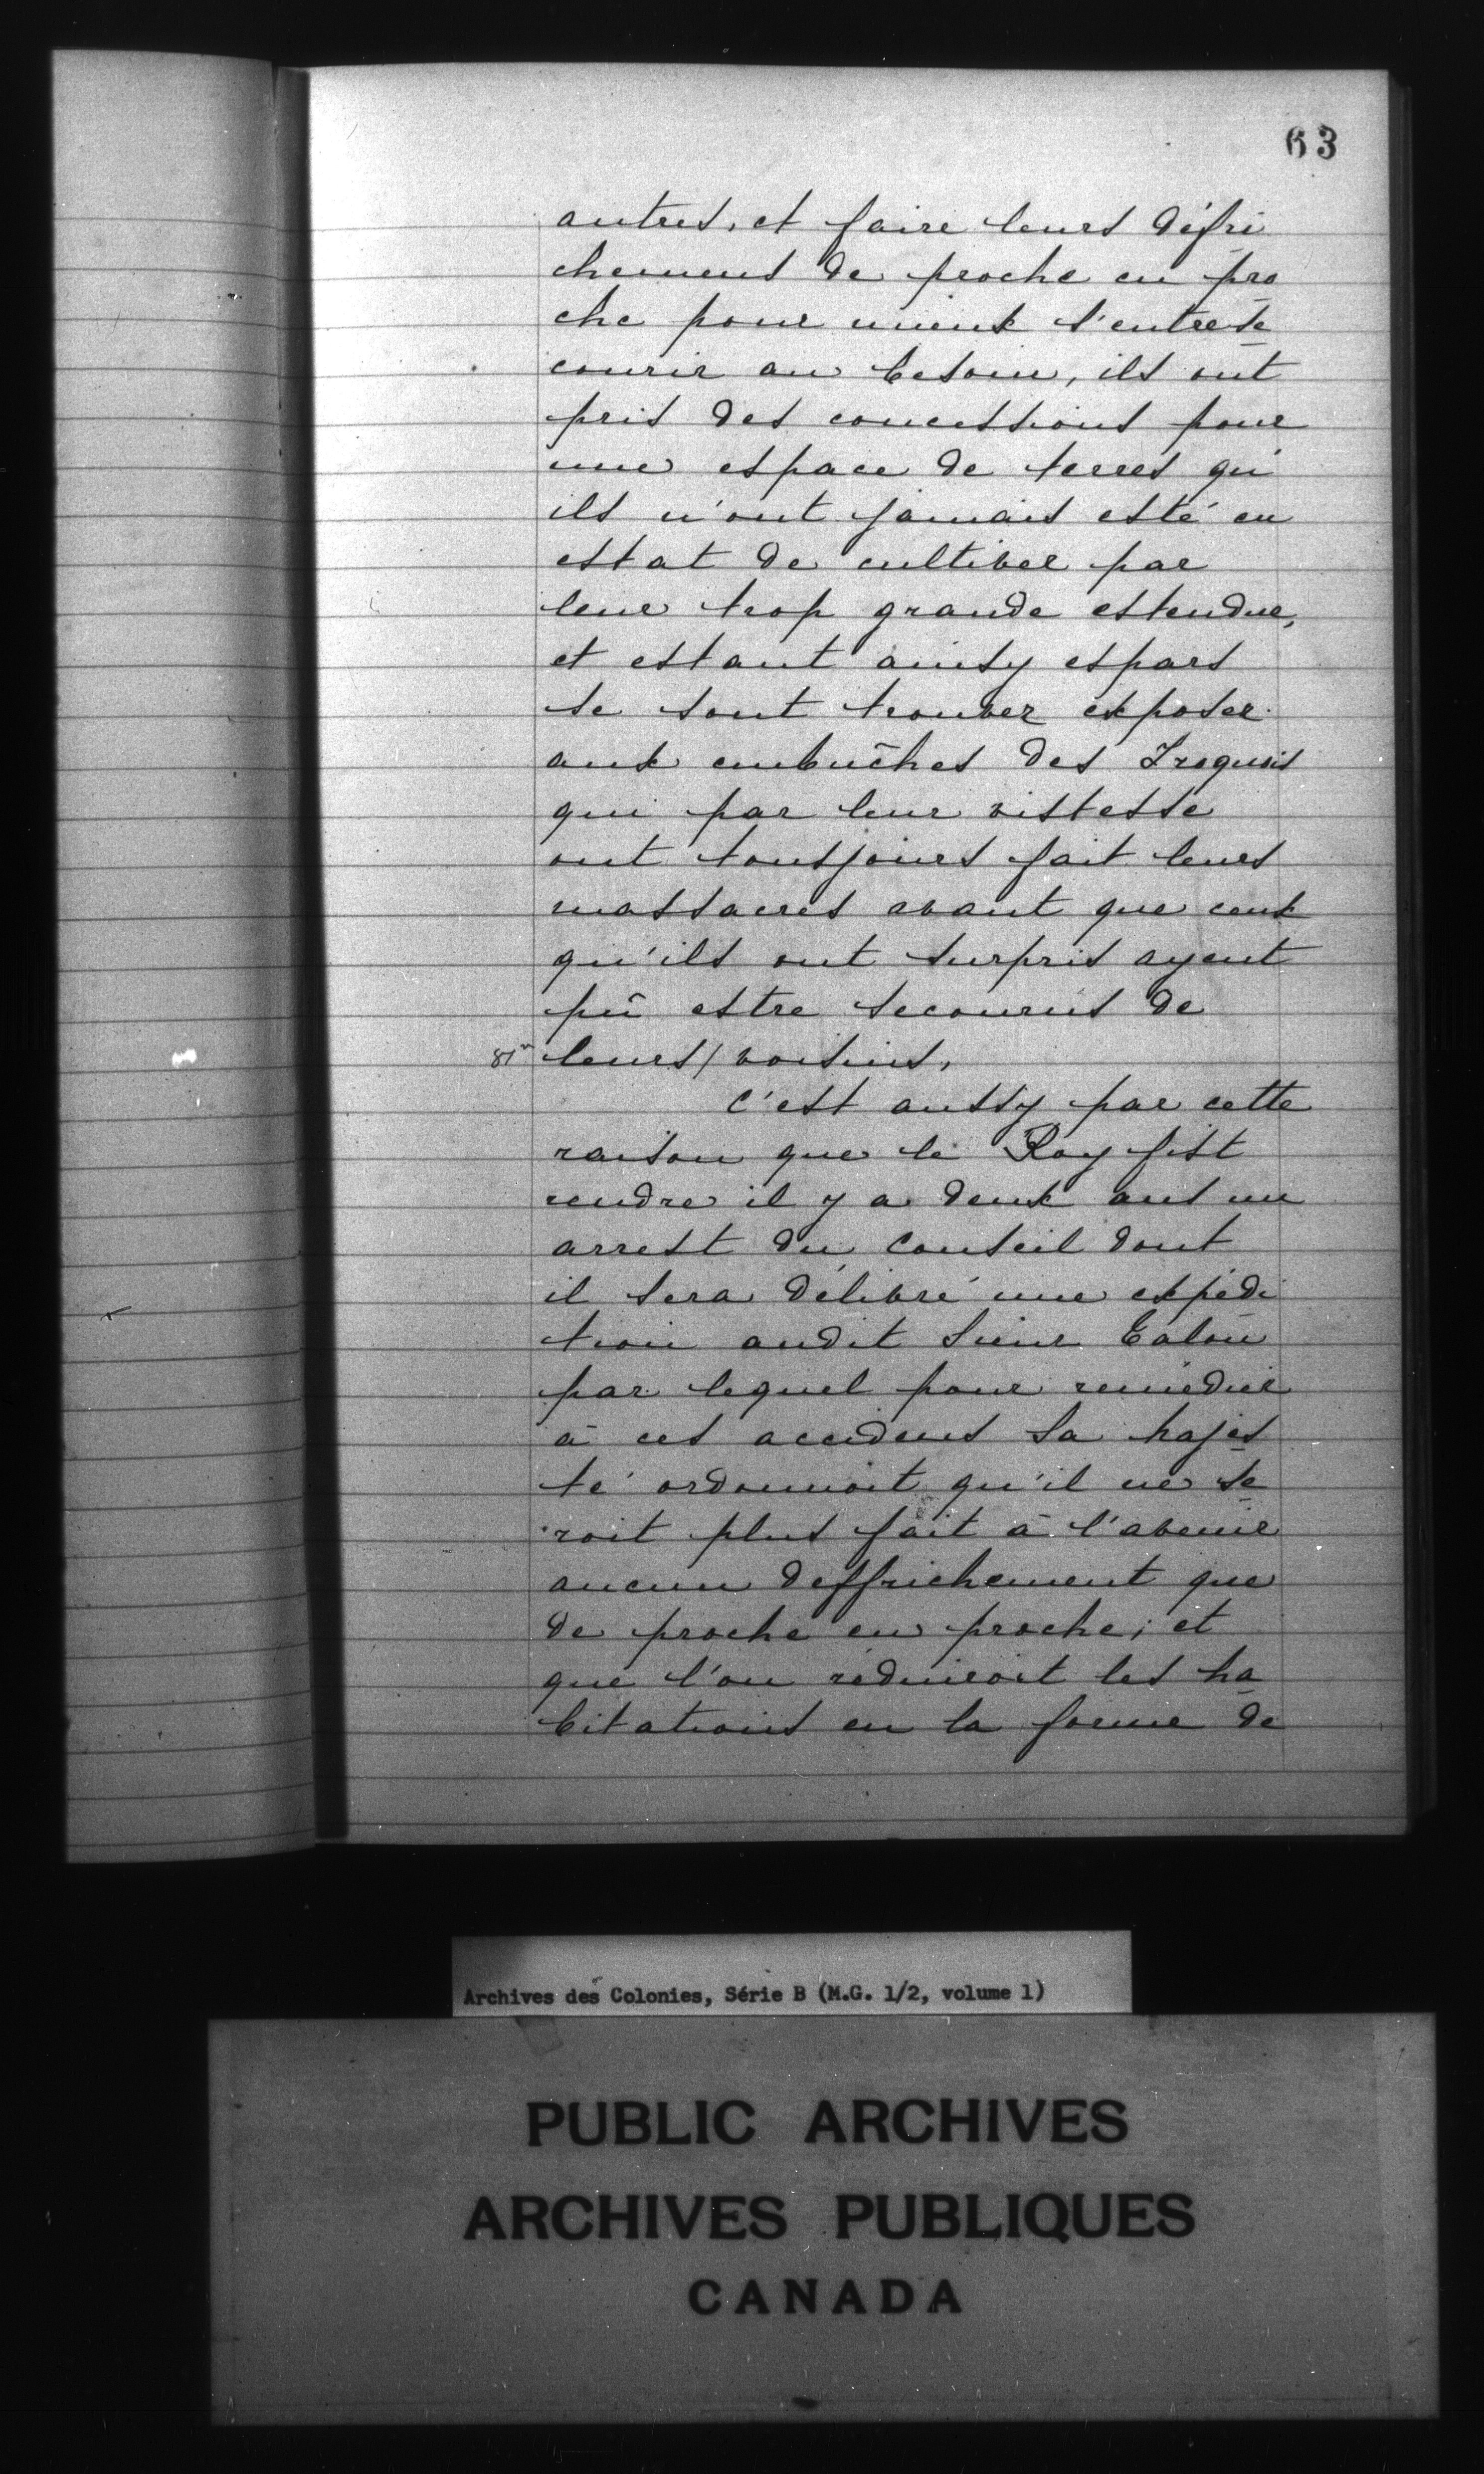 63
autres, et faire leurs défri
chemens de proche en pro
che pour mieux s'entrese
courir au besoin, ils ont
pris des concessions pour
une espace de terres qu'
ils n'ont jamais esté en
estat de cultiver par
leur trop grande estendue,
et estant ainsy espars
se sont trouver exposer
aux embûches des Iroquois
qui par leur vistesse
ont tousjours fait leurs
massacres avant que ceux
qu'ils ont surpris ayent
pû estre secourus de
leurs/voisins,
C'est aussy par cette
raison que le Roy fist
rendre il y a deux ans un
arrest du Conseil dont
il sera délivré une expédi
tion audit Sieur Talon
par lequel pour remédier
à ces accidens Sa Majes
té ordonnoit qu'il ne se
roit plus fait à l'avenir
aucun deffrichement que
de proche en proche; et
que l'on réduiroit les ha
bitations en la forme de
Archives des Colonies, Série B (M.G. 1/2, volume 1)
PUBLIC ARCHIVES
ARCHIVES PUBLIQUES
CANADA